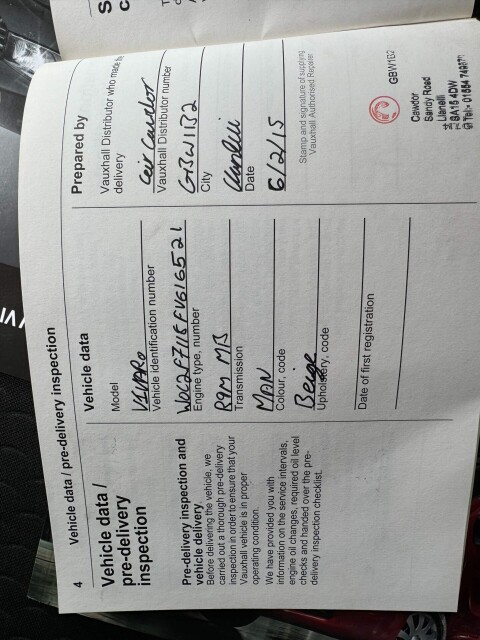 4
Vehicle data / pre-delivery inspection
Vehicle data /
pre-delivery
inspection
Pre-delivery inspection and
vehicle delivery.
Before delivering the vehicle, we
carried out a thorough pre-delivery
inspection in order to ensure that your
Vauxhall vehicle is in proper
operating condition.
We have provided you with
information on the service intervals,
engine oil changes, required oil level
checks and handed over the pre-
delivery inspection checklist.
Vehicle data
Model
VIVARO
Vehicle identification number
Engine type, number
R9M MB
Transmission
MAN
Colour, code
Beige
Upholstery, code
Date of first registration
Prepared by
Vauxhall Distributor who made
delivery
Ceir Cawdor
Vauxhall Distributor number
GBW1132
City
Llanelli
Date
6/2/15
Stamp and signature of supplying
Vauxhall Authorised Repairer
GBW1132
Cawdor
Sandy Road
Llanelli
SA15 4DW
Tel:
S